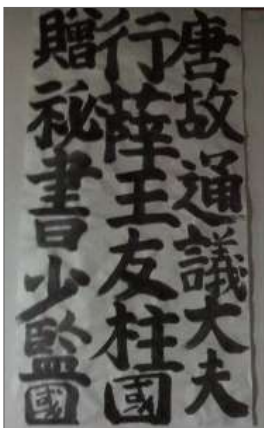 唐故通議大夫
行薛王友柱國
贈祕書少監國